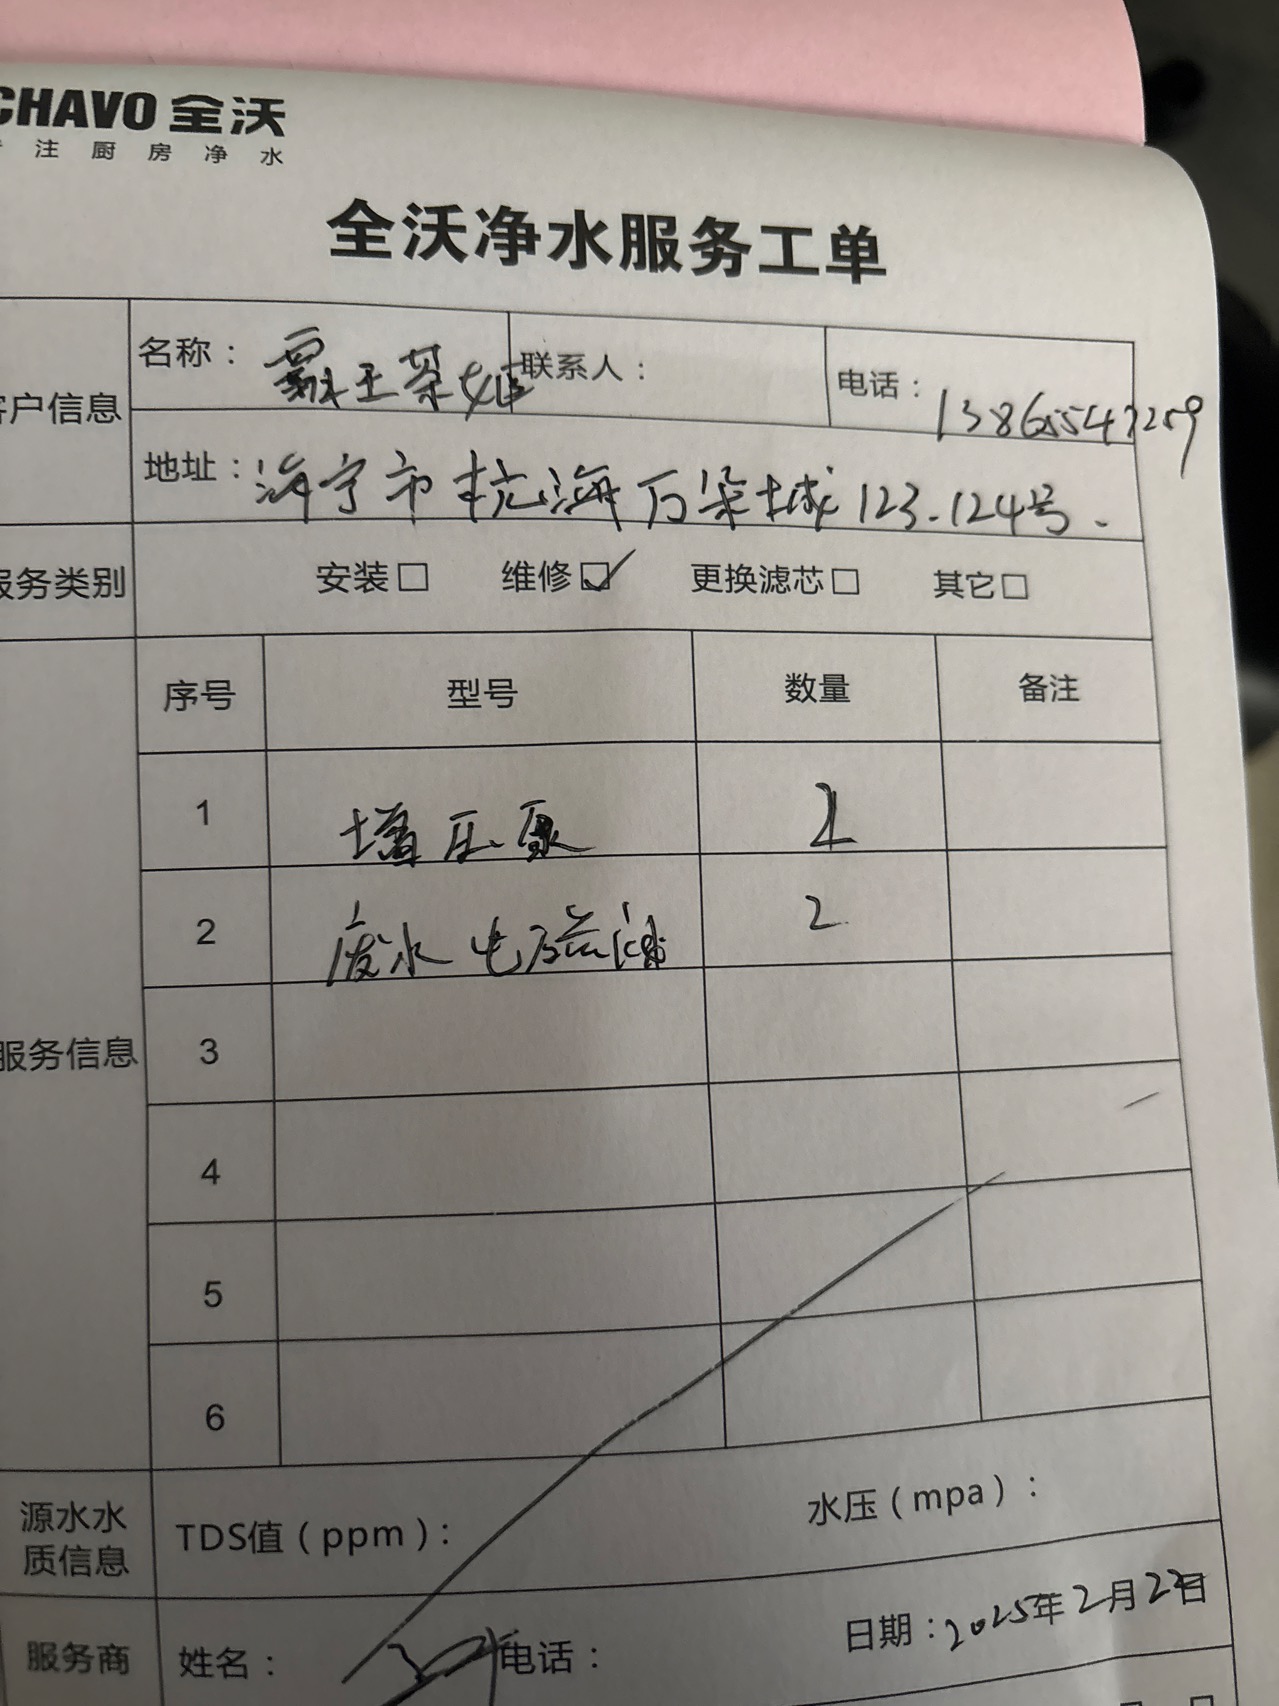 CHAVO 全沃
注厨房净水
全沃净水服务工单
客户信息
名称：霸王茶姬 联系人： 电话：13865547259
地址：海宁市杭海万朵城123.124号.
服务类别 安装□ 维修☑ 更换滤芯□ 其它□
序号 型号 数量 备注
1 增压泵
2 废水电磁阀 2
服务信息 3
4
5
6
源水水质信息 TDS值（ppm）： 水压（mpa）：
服务商 姓名： 电话： 日期：2025年2月22日